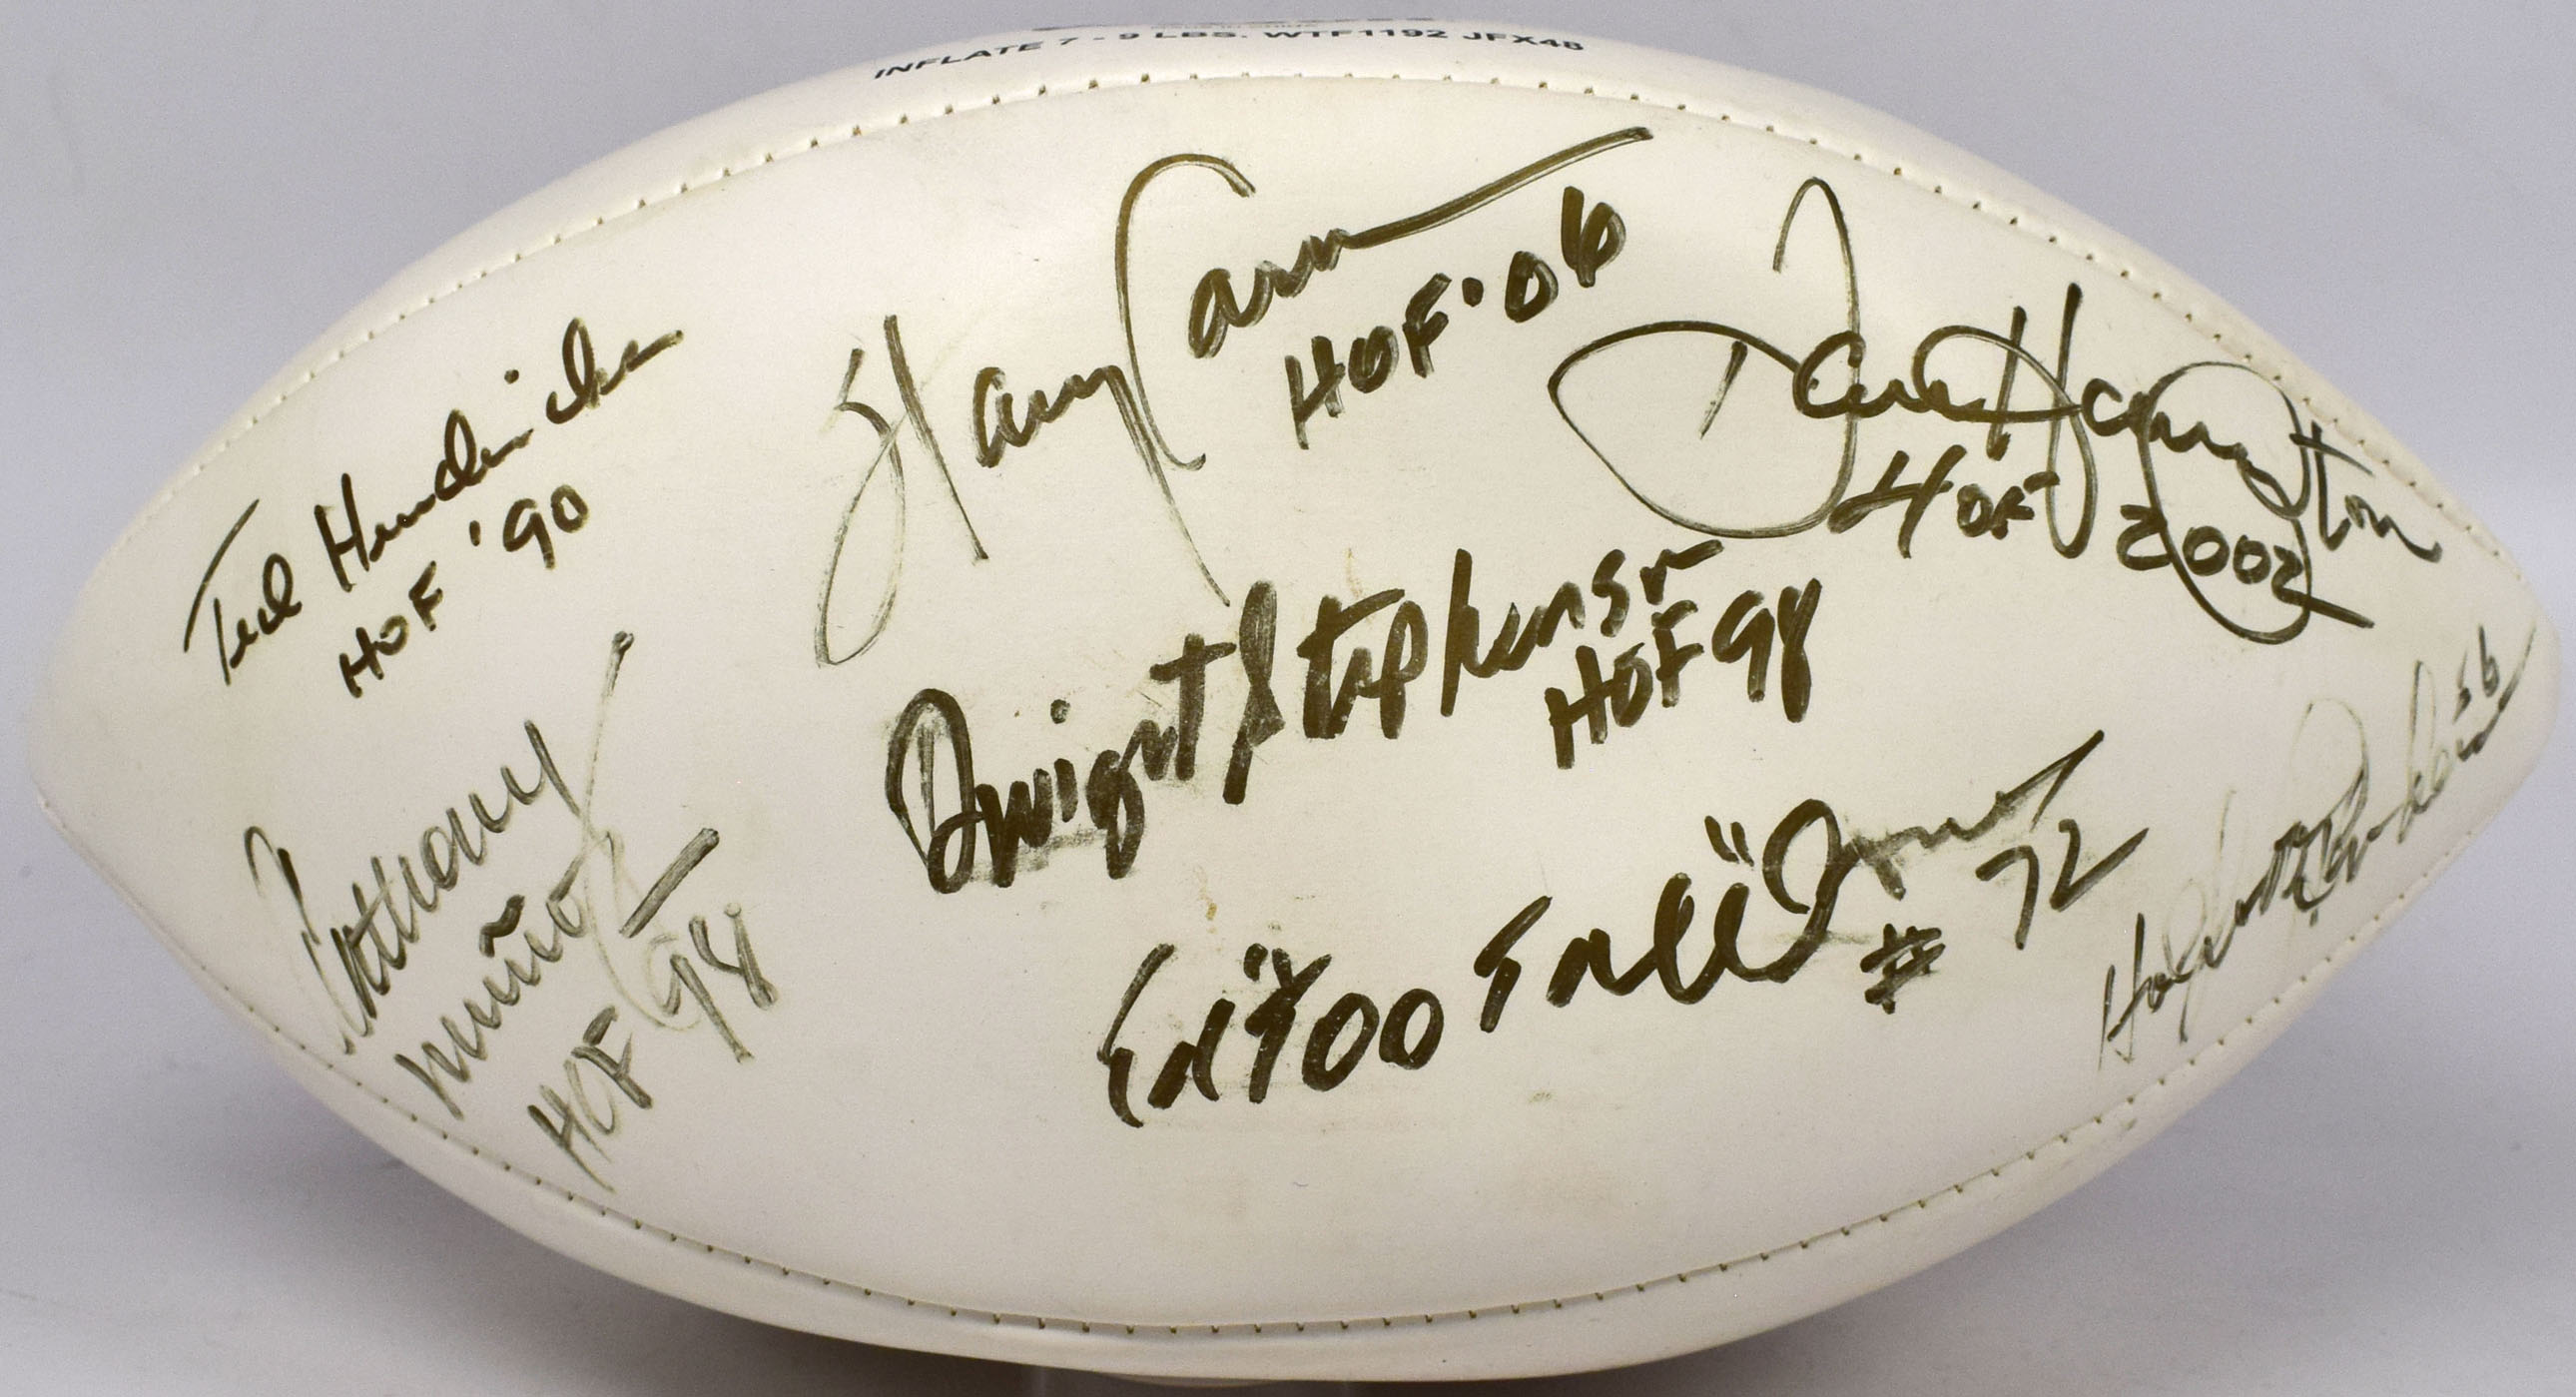 INFLATE 7 - 9 LBS. WTF1192 JFX48
Harry Carson
HOF '06
Dave Hampton
HOF 2002
Ted Hendricks
HOF '90
Dwight Stephenson
HOF 98
Anthony
Muñoz
HOF 98
Ed "Too Tall" Jones
# 72
56